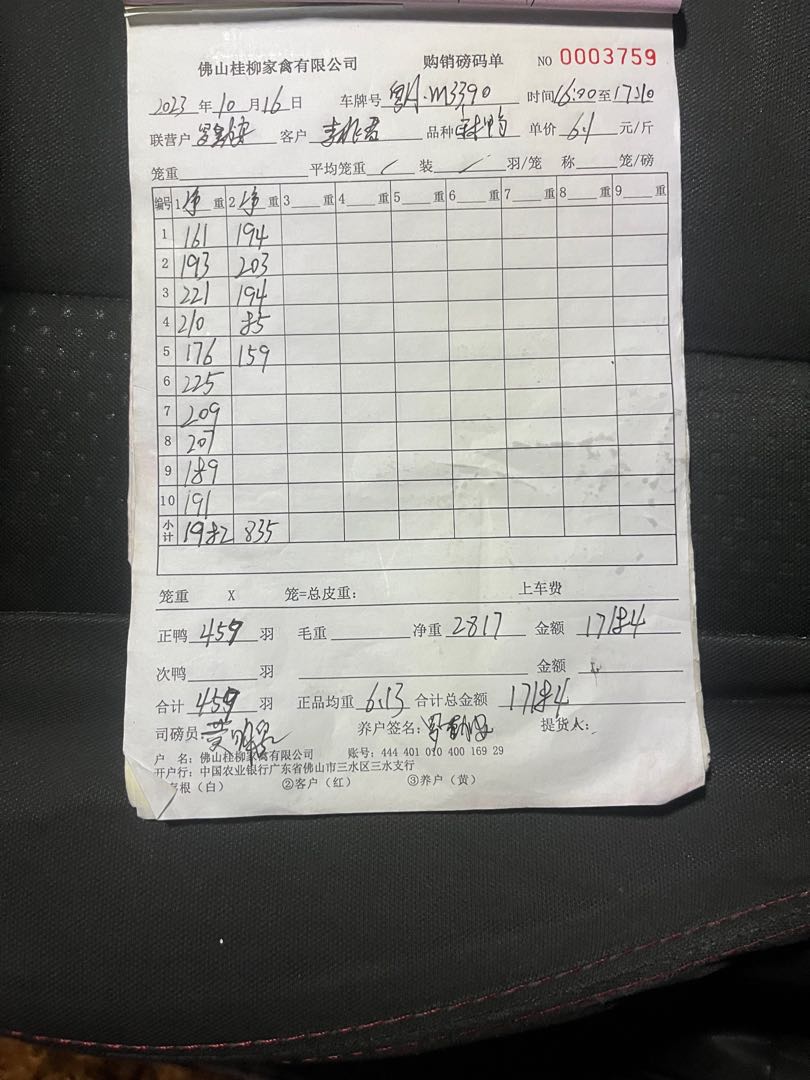 佛山桂柳家禽有限公司 购销磅码单 NO 0003759
2023 年 10 月 16 日 车牌号 粤A·M3390 时间 16:20 至 17:10
联营户 客户 品种 单价 6.1 元/斤
笼重 平均笼重 / 装 / 羽/笼 称 笼/磅
编号 1 净 重 2 净 重 3 重 4 重 5 重 6 重 7 重 8 重 9 重
1 161 194
2 193 203
3 221 194
4 210 85
5 176 159
6 225
7 209
8 207
9 189
10 191
小计 1982 835
笼重 X 笼=总皮重: 上车费
正鸭 459 羽 毛重 净重 2817 金额 17184
次鸭 羽 金额
合计 459 羽 正品均重 6.13 合计总金额 17184
司磅员: 养户签名: 提货人:
户 名: 佛山桂柳家禽有限公司 账号: 444 401 010 400 169 29
开户行: 中国农业银行广东省佛山市三水区三水支行
根(白) ②客户(红) ③养户(黄)